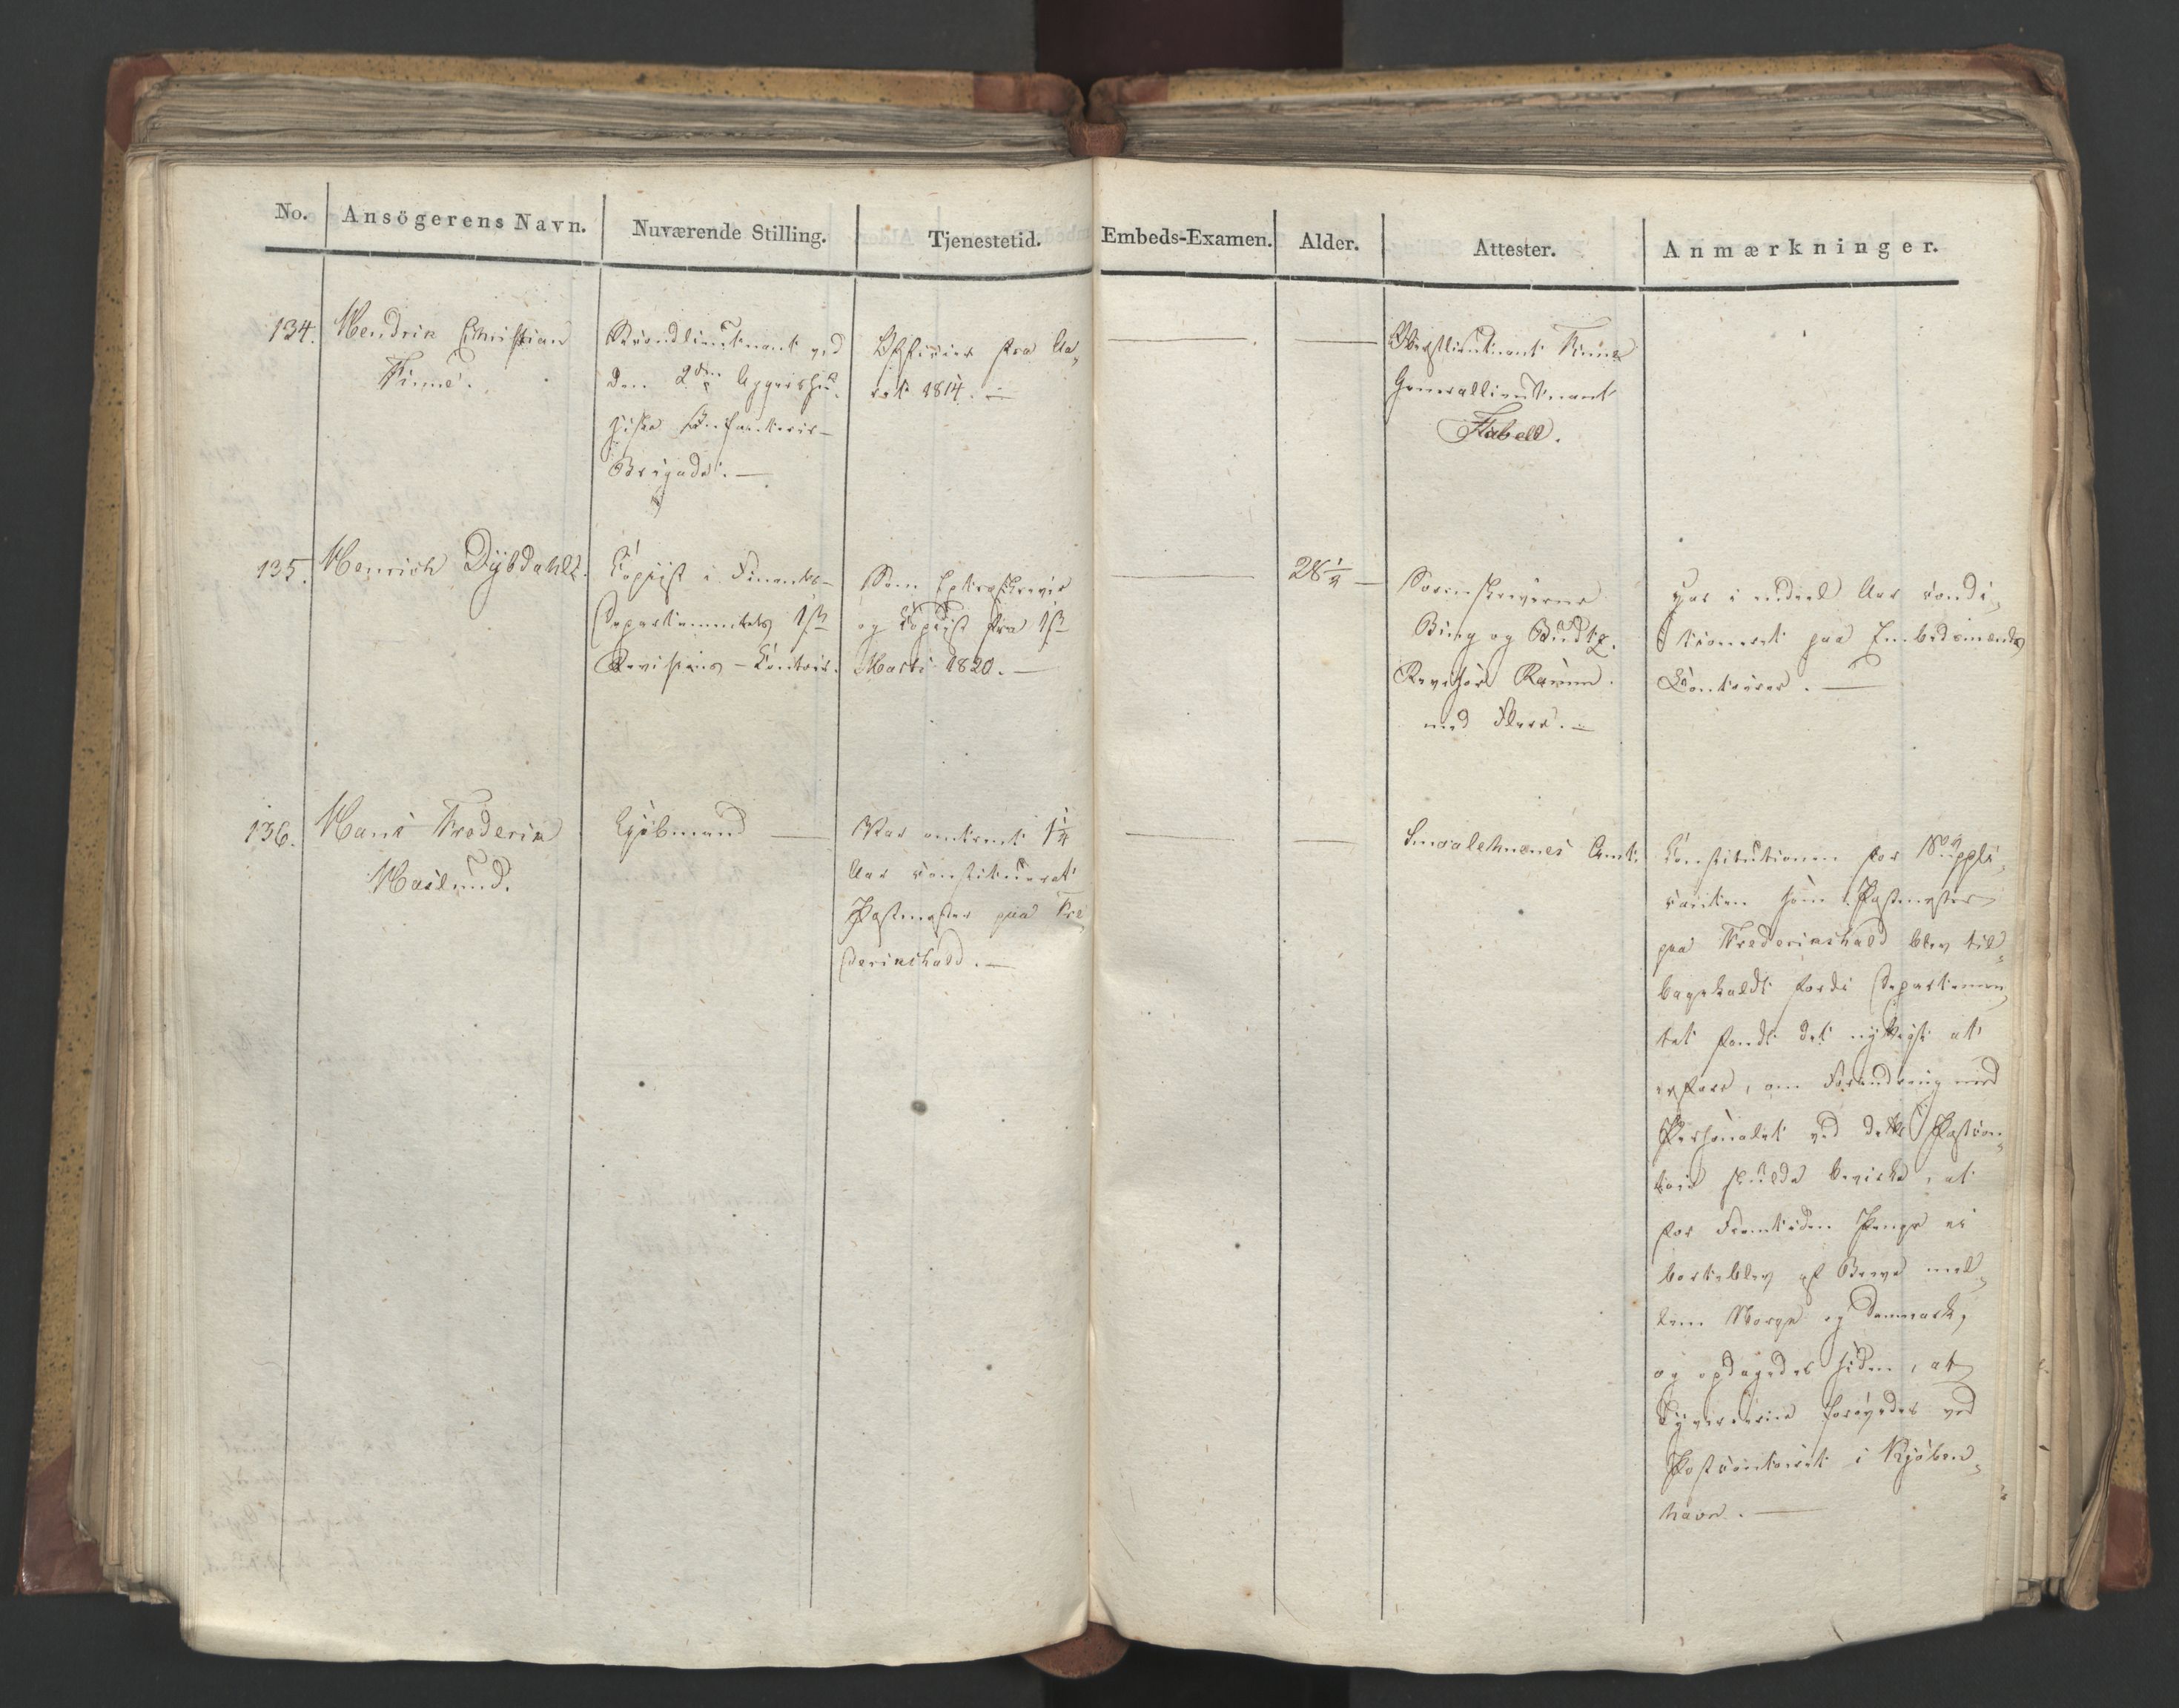 No.
Ansögerens Navn.
Nuværende Stilling.
Tjenestetid.
Embeds-Examen.
Alder.
Attester.
Anmærkninger.
134.
Hendrik Christian
Finne.
Secondlieutenant ved
den 2den Aggershu-
siske Infanterie-
Brigade. —
Officier fra Aa-
ret 1814. —
—
—
Oberstlieutenant Finne
Generallieutenant
Stabell.
135.
Henrich Dybdahl.
Copiist i Finants-
Departementets 1ste
Revisions-Contoir.
Som Extraskriver
og Copiist fra 1ste
Marts 1820. —
—
28 1/4 —
Sorenskriverne
Bing og Budtz.
Revisor Ravnn.
med Flere. —
har i endeel Aar condi-
tioneret paa Embedsmænds
Contoirer. —
136.
Hans Frederik
Haslund.
Kjöbmand —
Var omtrent 1 1/4
Aar constitueret
Postmester paa Fre-
derikshald. —
—
—
Smaalehnenes Amt.
Constitutionen for Suppli-
canten som Postmester
paa Frederikshald blev til-
bagekaldt fordi Departemen-
tet fandt det nyttigt at
erfare, om Forandring med
Personalet ved dette Postcon-
toir skulde bevirke, at
for Fremtiden Penge ei
borteblev af Breve mel-
lem Norge og Danmark,
og opdagedes siden, at
Tyverierne forövedes ved
Postcontoiret i Kjöben-
havn. —